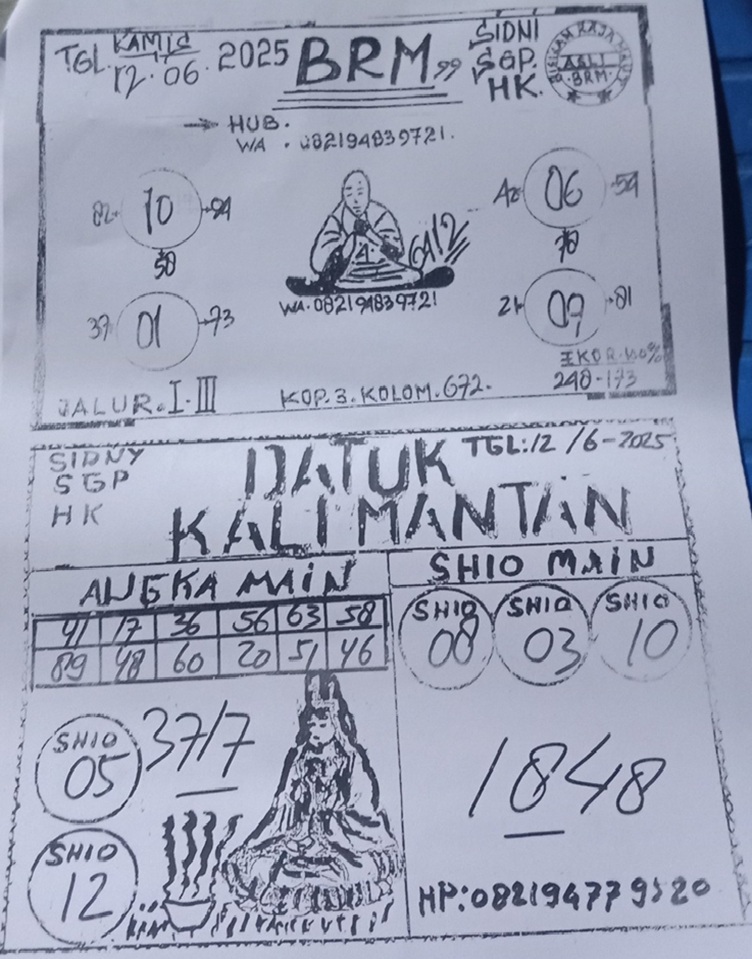 TGL. KAMIS
12.06.2025
BRM99
SIDNI
SGP.
HK.
ASLI
BRM
→ HUB.
WA . 082194839721.
82 10 94
58
6412
42 06 54
78
WA. 082194839721
01 73
21 07 81
EKOR. 100%
248-173
JALUR. I-III
KOP. 3. KOLOM. 672.
SIDNY
SGP
HK
DATUK
KALIMANTAN
TGL:12/6-2025
ANGKA MAIN
41 17 36 56 63 58
89 48 60 20 51 46
SHIO MAIN
SHIO 08
SHIO 03
SHIO 10
SHIO 05
37/7
SHIO 12
1848
HP:082194779520